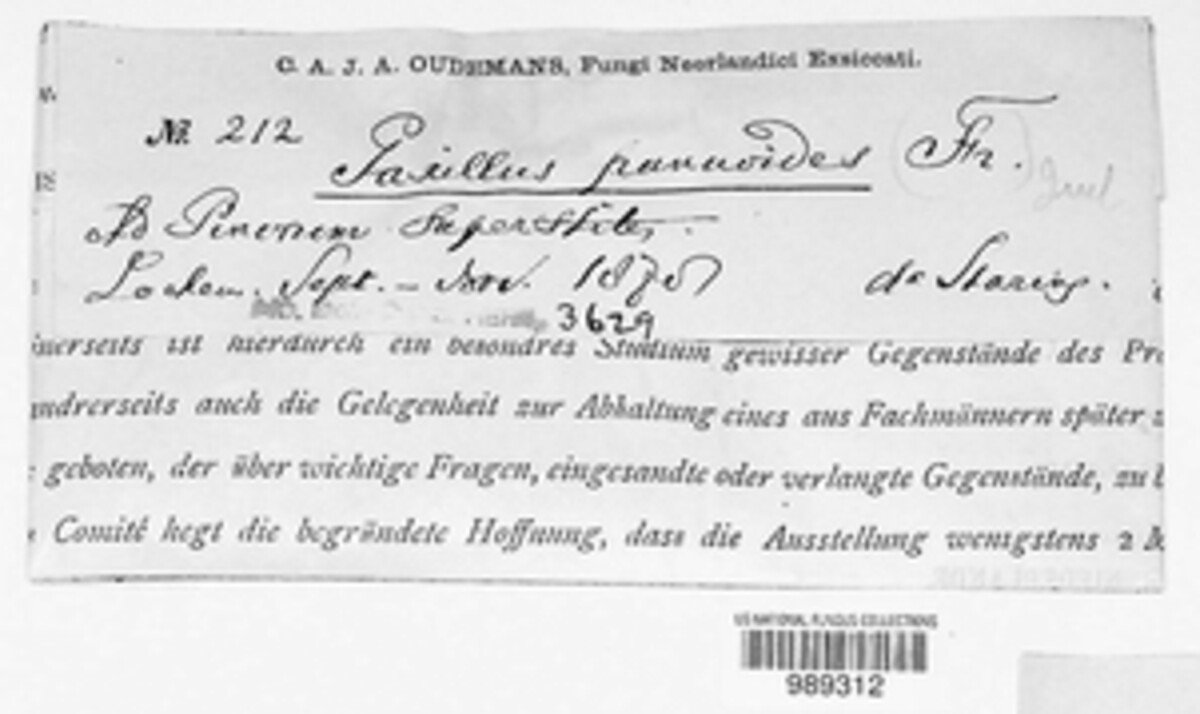 C. A. J. A. OUDEMANS, Fungi Neerlandici Exsiccati.
No. 212 Paxillus panuoides Fr.
Ad Pinorum superstites.
Lochem. Sept. - Nov. 1875 de Staring.
3629
einerseits ist hierdurch ein besondres Studium gewisser Gegenstände des
andrerseits auch die Gelegenheit zur Abhaltung eines aus Fachmännern später
geboten, der über wichtige Fragen, eingesandte oder verlangte Gegenstände, zu
Comité hegt die begründete Hoffnung, dass die Ausstellung wenigstens 2
US NATIONAL FUNGUS COLLECTIONS
989312